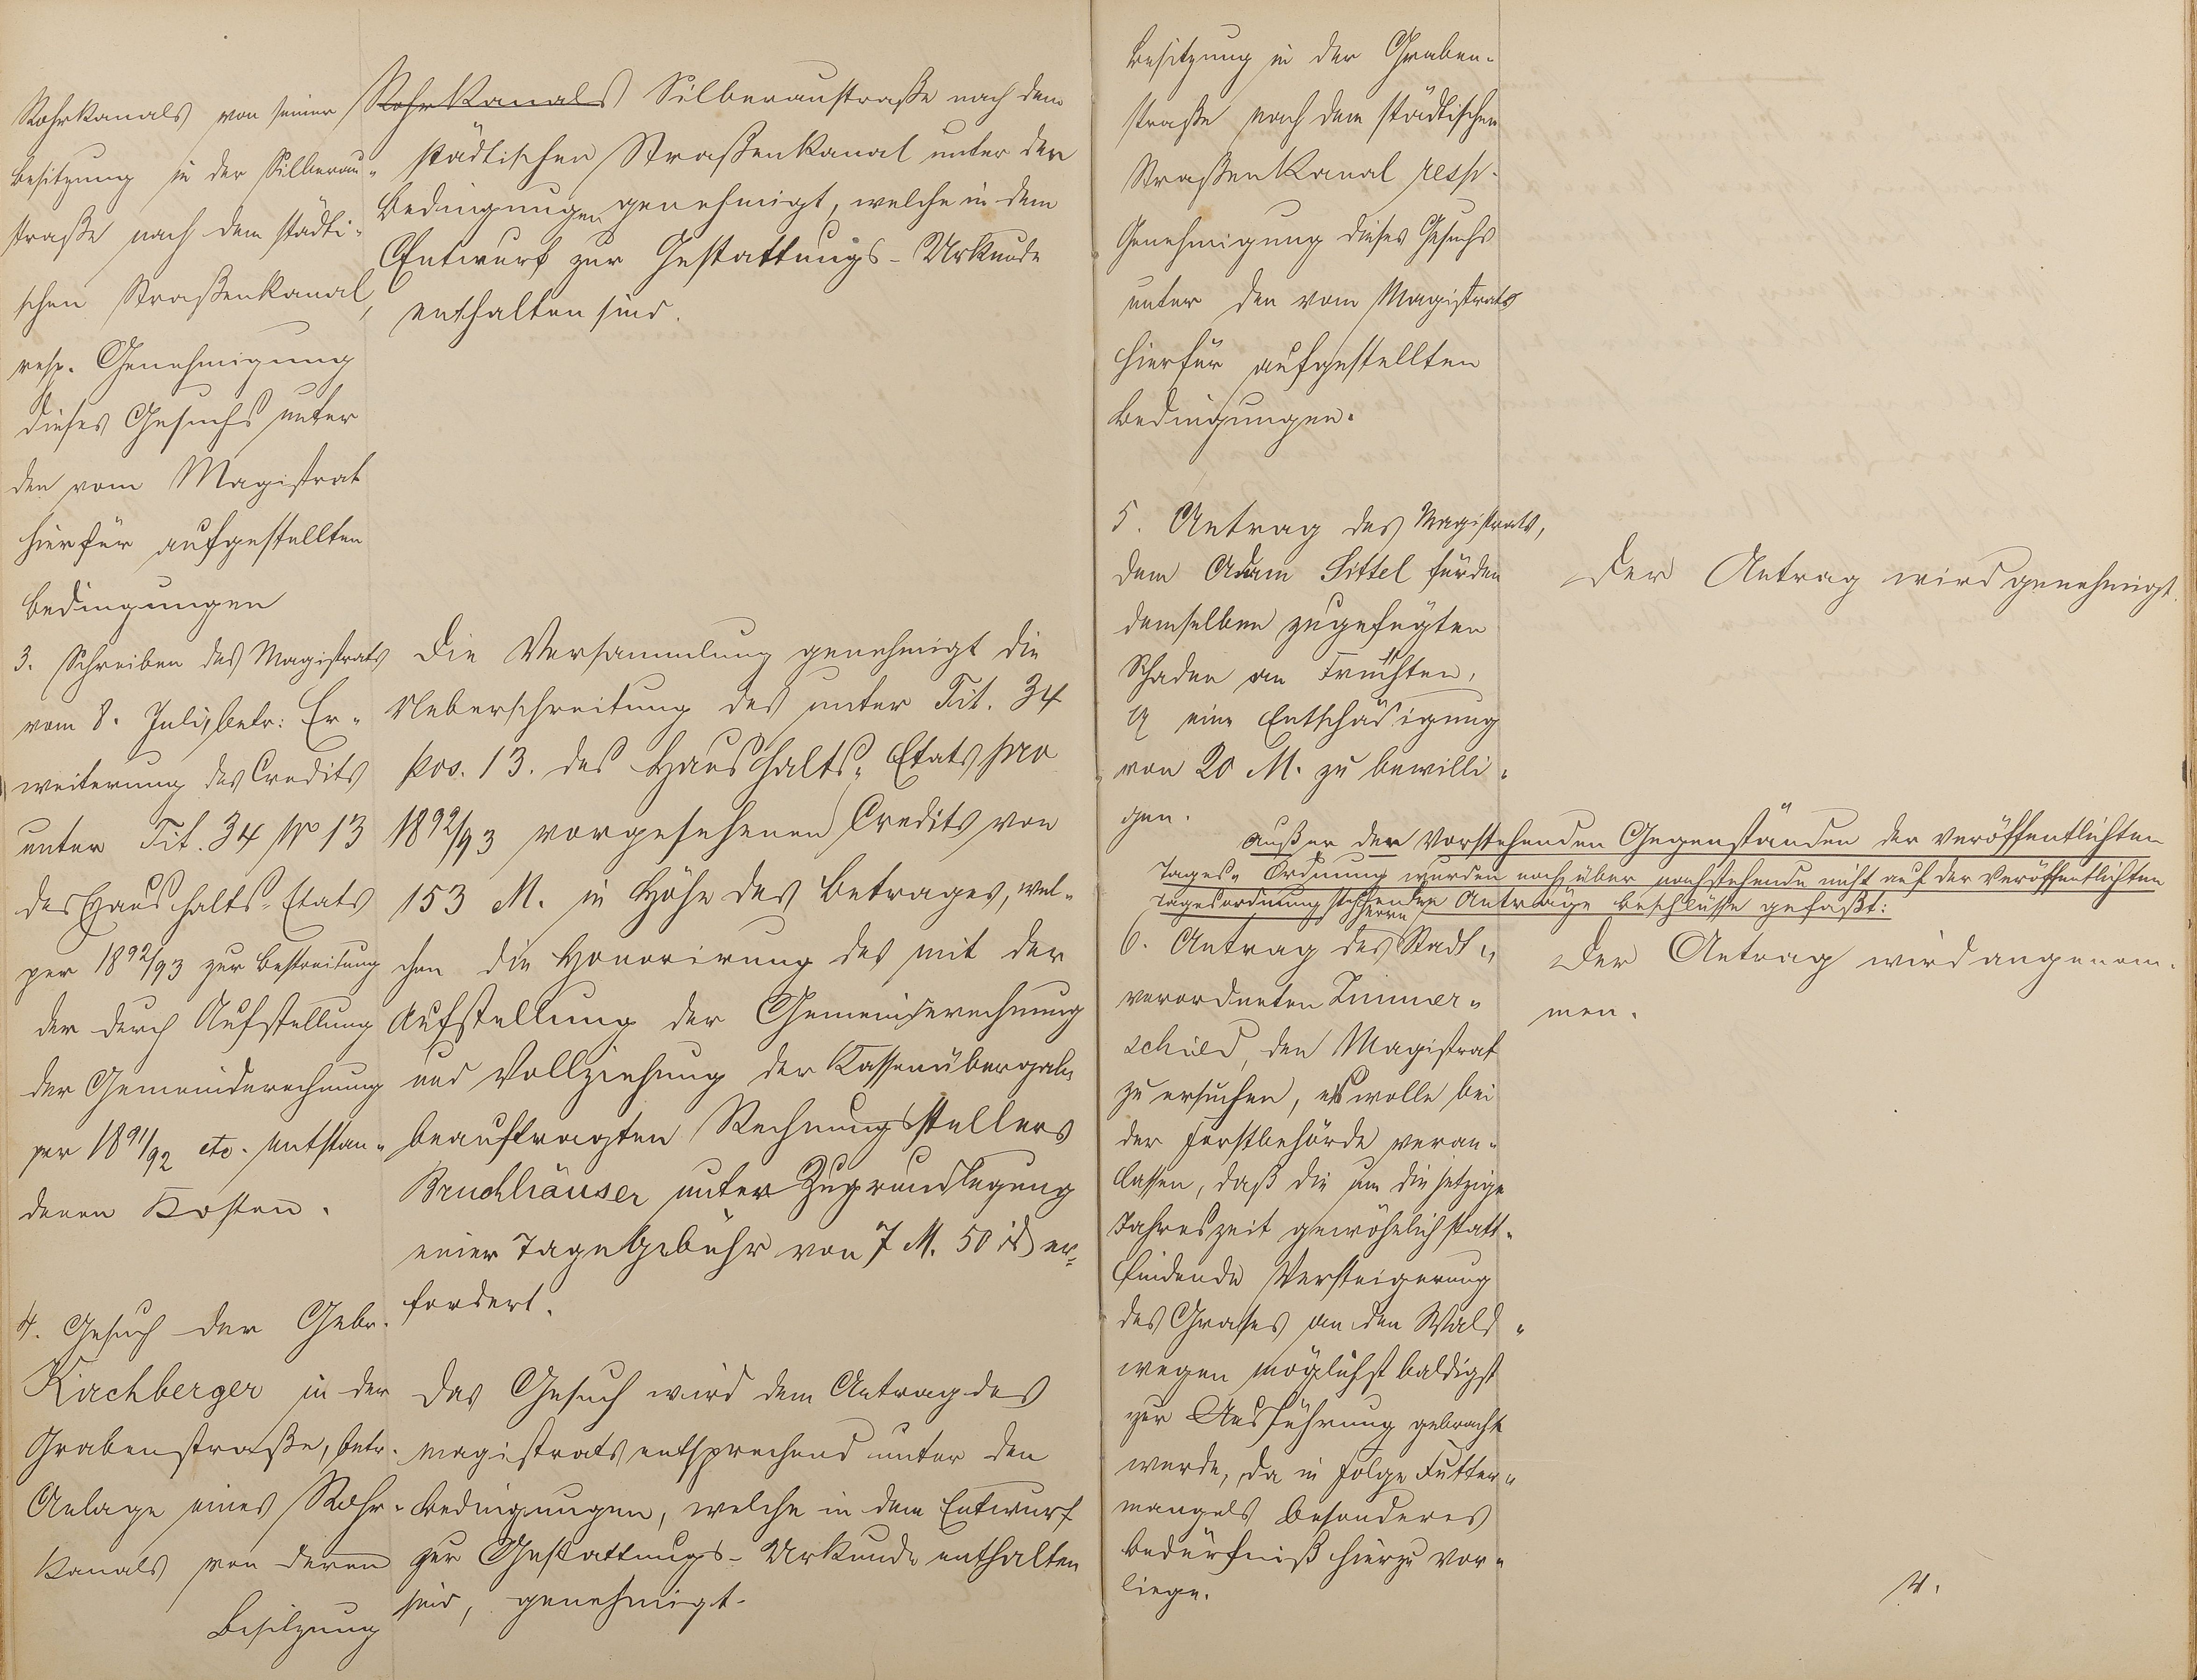 Rohrkanals von seiner
Besitzung in der Silberau-
straße nach dem städti-
schen Straßenkanal,
resp. Genehmigung
dieses Gesuchs unter
den vom Magistrat
hierfür aufgestellten
Bedingungen
Rohrkanals Silberaustraße nach dem
städtischen Straßenkanal unter den
Bedingungen genehmigt, welche in dem
Entwurf zur Gestattungs-Urkunde
enthalten sind.
3. Schreiben des Magistrats
vom 8. Juli, betr: Er-
weiterung des Credits
unter Tit. 34 No 13
des Haushalts-Etats
per 1892/93 zur Bestreitung
der durch Aufstellung
der Gemeinderechnung
per 1891/92 etc. entstan-
denen Kosten.
Die Versammlung genehmigt die
Ueberschreitung des unter Tit. 34
pos. 13. des Haushalts-Etats pro
1892/93 vorgesehenen Credits von
153 M. in Höhe des Betrages, wel-
chen die Honorirung des mit der
Aufstellung der Gemeinderechnung
und Vollziehung der Kassenübergabe
beauftragten Rechnungsstellers
Bruchhäuser unter Zugrundlegung
einer Tagegebühr von 7 M. 50 er-
fordert.
4. Gesuch der Gebr.
Kirchberger in der
Grabenstraße, betr.
Anlage eines Rohr-
kanals von deren
Besitzung
Das Gesuch wird dem Antrag des
Magistrats entsprechend unter den
Bedingungen, welche in dem Entwurf
zur Gestattungs-Urkunde enthalten
sind, genehmigt.
Besitzung in der Graben-
straße nach dem städtischen
Straßenkanal resp.
Genehmigung dieses Gesuchs
unter den vom Magistrats
hierfür aufgestellten
Bedingungen.
5. Antrag des Magistrats,
dem Adam Sittel für den
demselben zugefügten
Schaden an Früchten,
eine Entschädigung
von 20 M. zu bewilli-
gen.
Der Antrag wird genehmigt.
Außer den vorstehenden Gegenständen der veröffentlichten
Tages-Ordnung wurden noch über nachstehende nicht auf der veröffentlichten
Tagesordnung stehenden Anträge Beschlüsse gefaßt:
6. Antrag des Herrn Stadt-
verordneten Zimmer-
schied, den Magistrat
zu ersuchen, es wolle bei
der Forstbehörde veran-
lassen, daß die um die jetzige
Jahreszeit gewöhnlich statt-
findende Versteigerung
des Grases an den Wald-
wegen möglichst baldigst
zur Ausführung gebracht
werde, da in Folge Futter-
mangels besonderes
Bedürfniß hierzu vor-
liege.
Der Antrag wird angenom-
men.